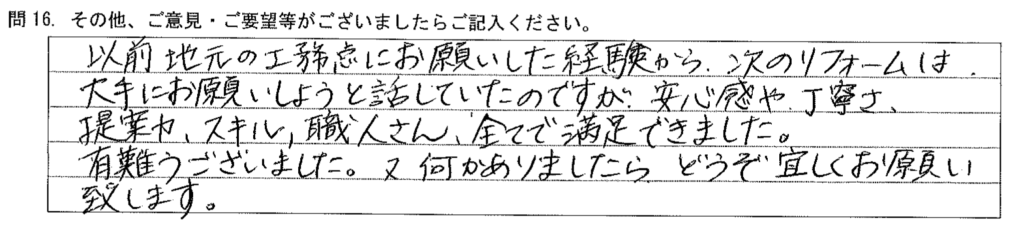 問16. その他、ご意見・ご要望等がございましたらご記入ください。
以前地元の工務店にお願いした経験から、次のリフォームは、
大手にお願いしようと話していたのですが、安心感や、丁寧さ、
提案力、スキル、職人さん、全てで満足できました。
有難うございました。又何かありましたら、どうぞ宜しくお願い
致します。